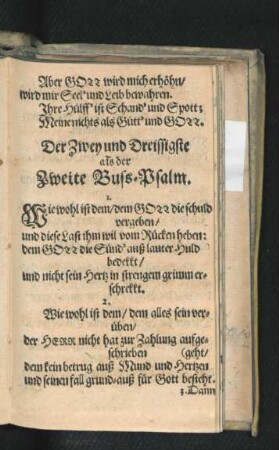 Aber GOTT wird mich erhöhn/
wird mir Seel' und Leib bewahren.
Ihre Hülff' ist Schand' und Spott;
Meine nichts als Gütt' und GOTT.
Der Zwey und Dreissigste
als der
Zweite Buſs-Psalm.
1.
Wie wohl ist dem/ dem GOTT die schuld
vergeben/
und diese Last ihm wil vom Rücken heben:
dem GOTT die Sünd' auß lauter Huld
bedekkt/
und nicht sein Hertz in strengem grimm er-
schrekkt.
2.
Wie wohl ist dem/ dem alles sein ver-
üben/
der HERR nicht hat zur Zahlung aufge-
schrieben (geht/
dem kein betrug auß Mund und Hertzen
und seinen fall grund-auß für Gott besteht.
3. Dann